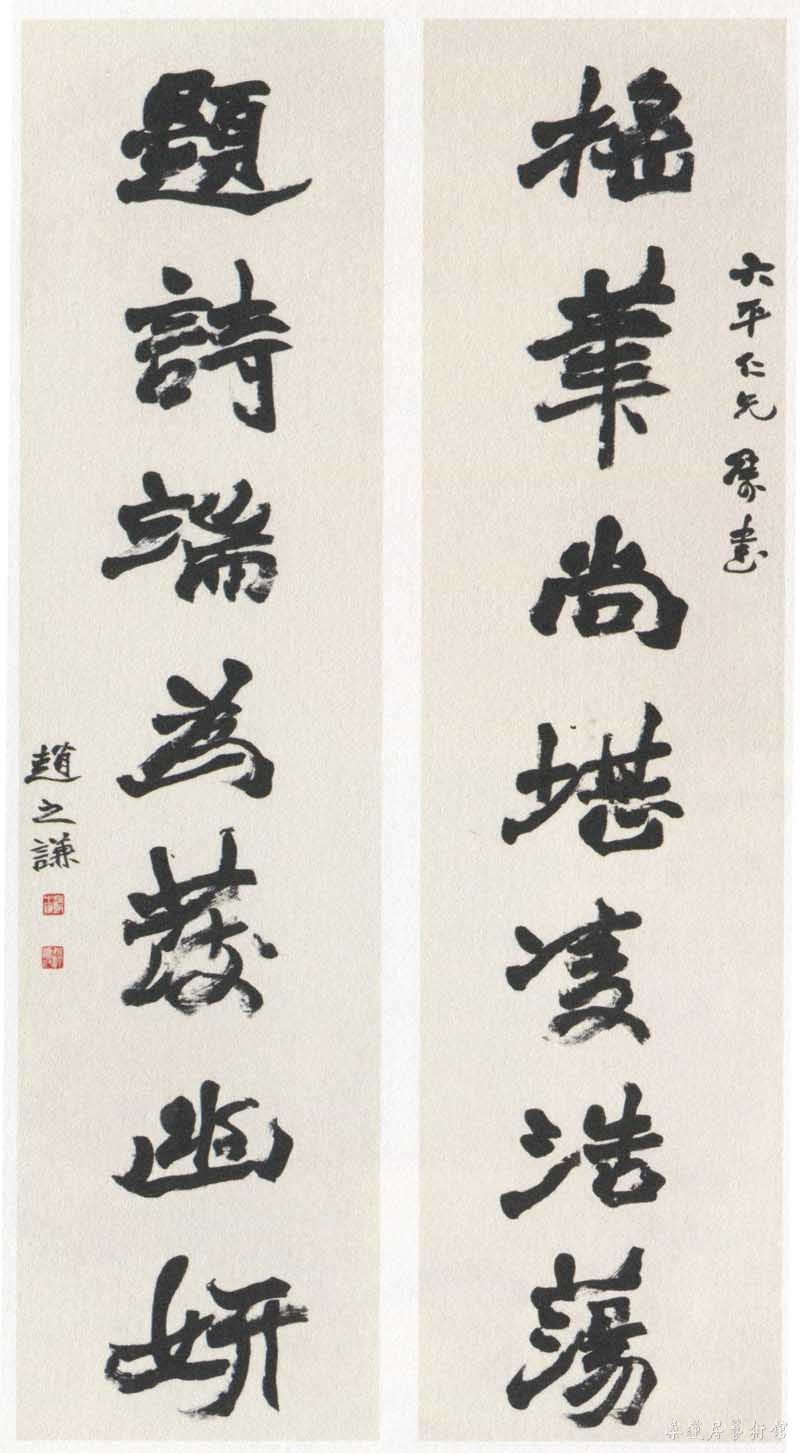 六平仁兄屬書
搖筆尚堪凌浩蕩
題詩端為發幽妍
趙之謙
桑蓮居藝術館